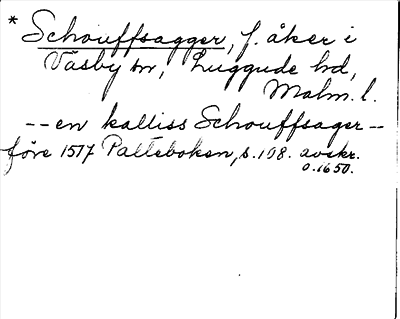 * Schouffsagger, f. åker i
Väsby sn, Luggude hd,
Malm. l.
-- en kalliss Schouffsager --
före 1517 Palteboken, s. 108. avskr.
o. 1650.